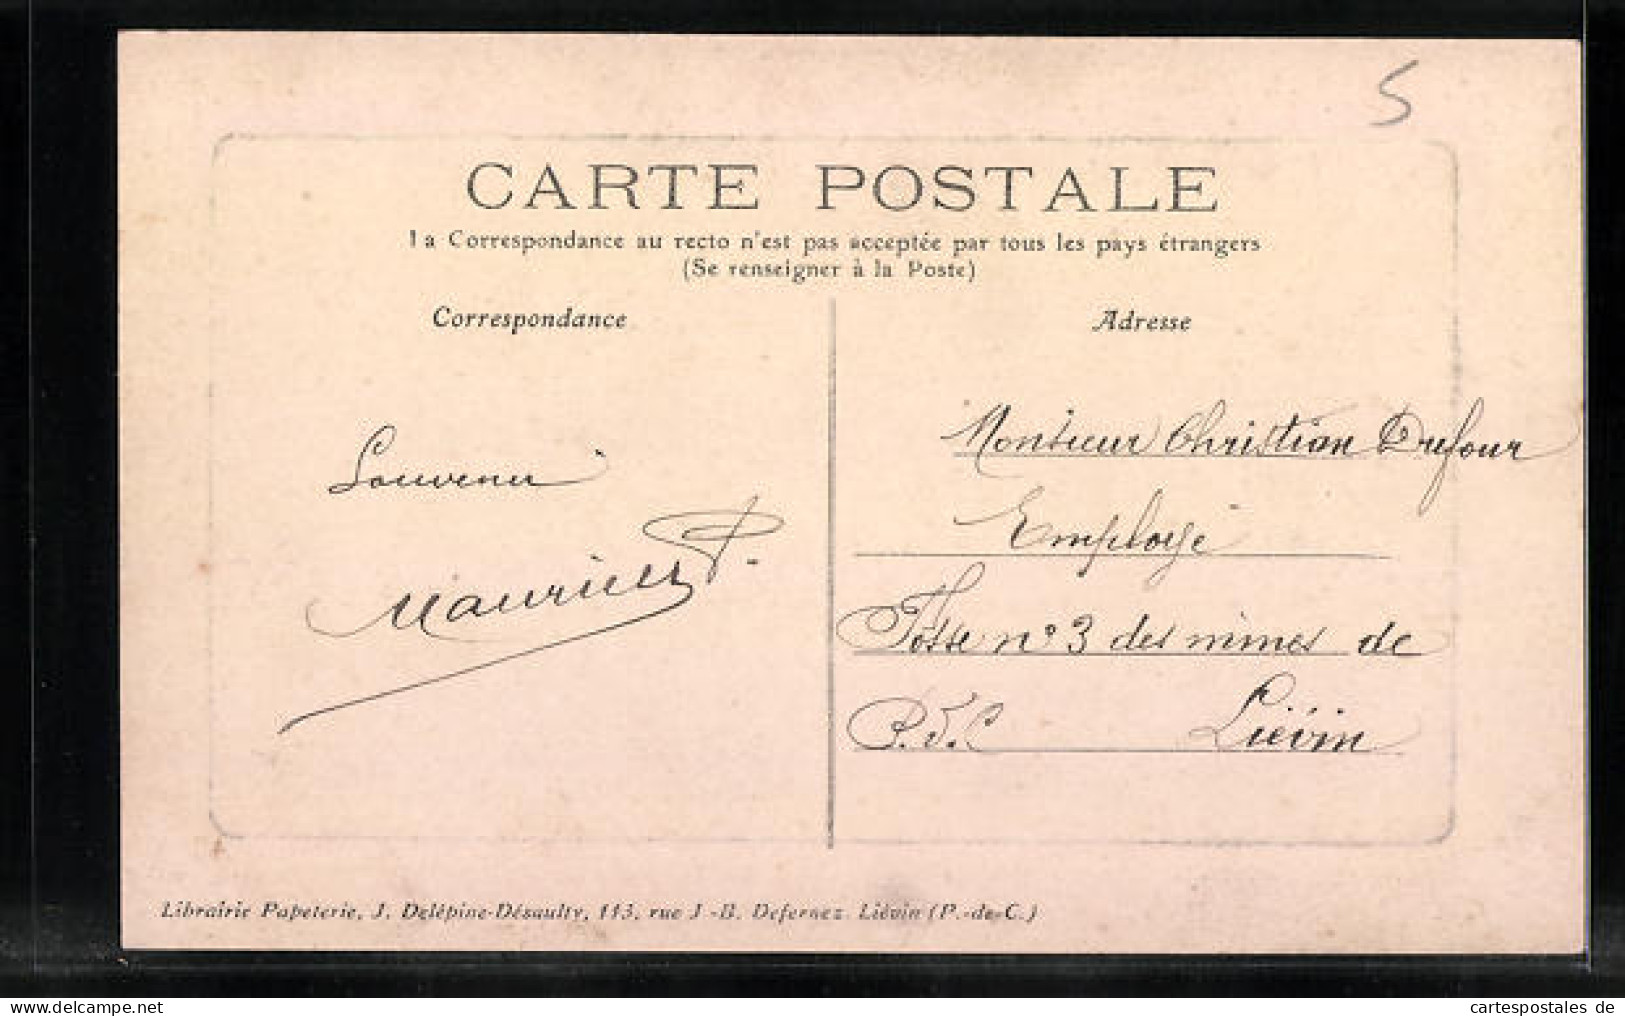 S
CARTE POSTALE
La Correspondance au recto n'est pas acceptée par tous les pays étrangers
(Se renseigner à la Poste)
Correspondance
Adresse
Souvenir
Maurice P.
Monsieur Christian Dufour
Employé
Fosse n° 3 des mines de
P.d.C Liévin
Librairie Papeterie, J. Delépine-Désaulty, 113, rue J.-B. Defernez. Liévin (P.-de-C.)
cartespostales de